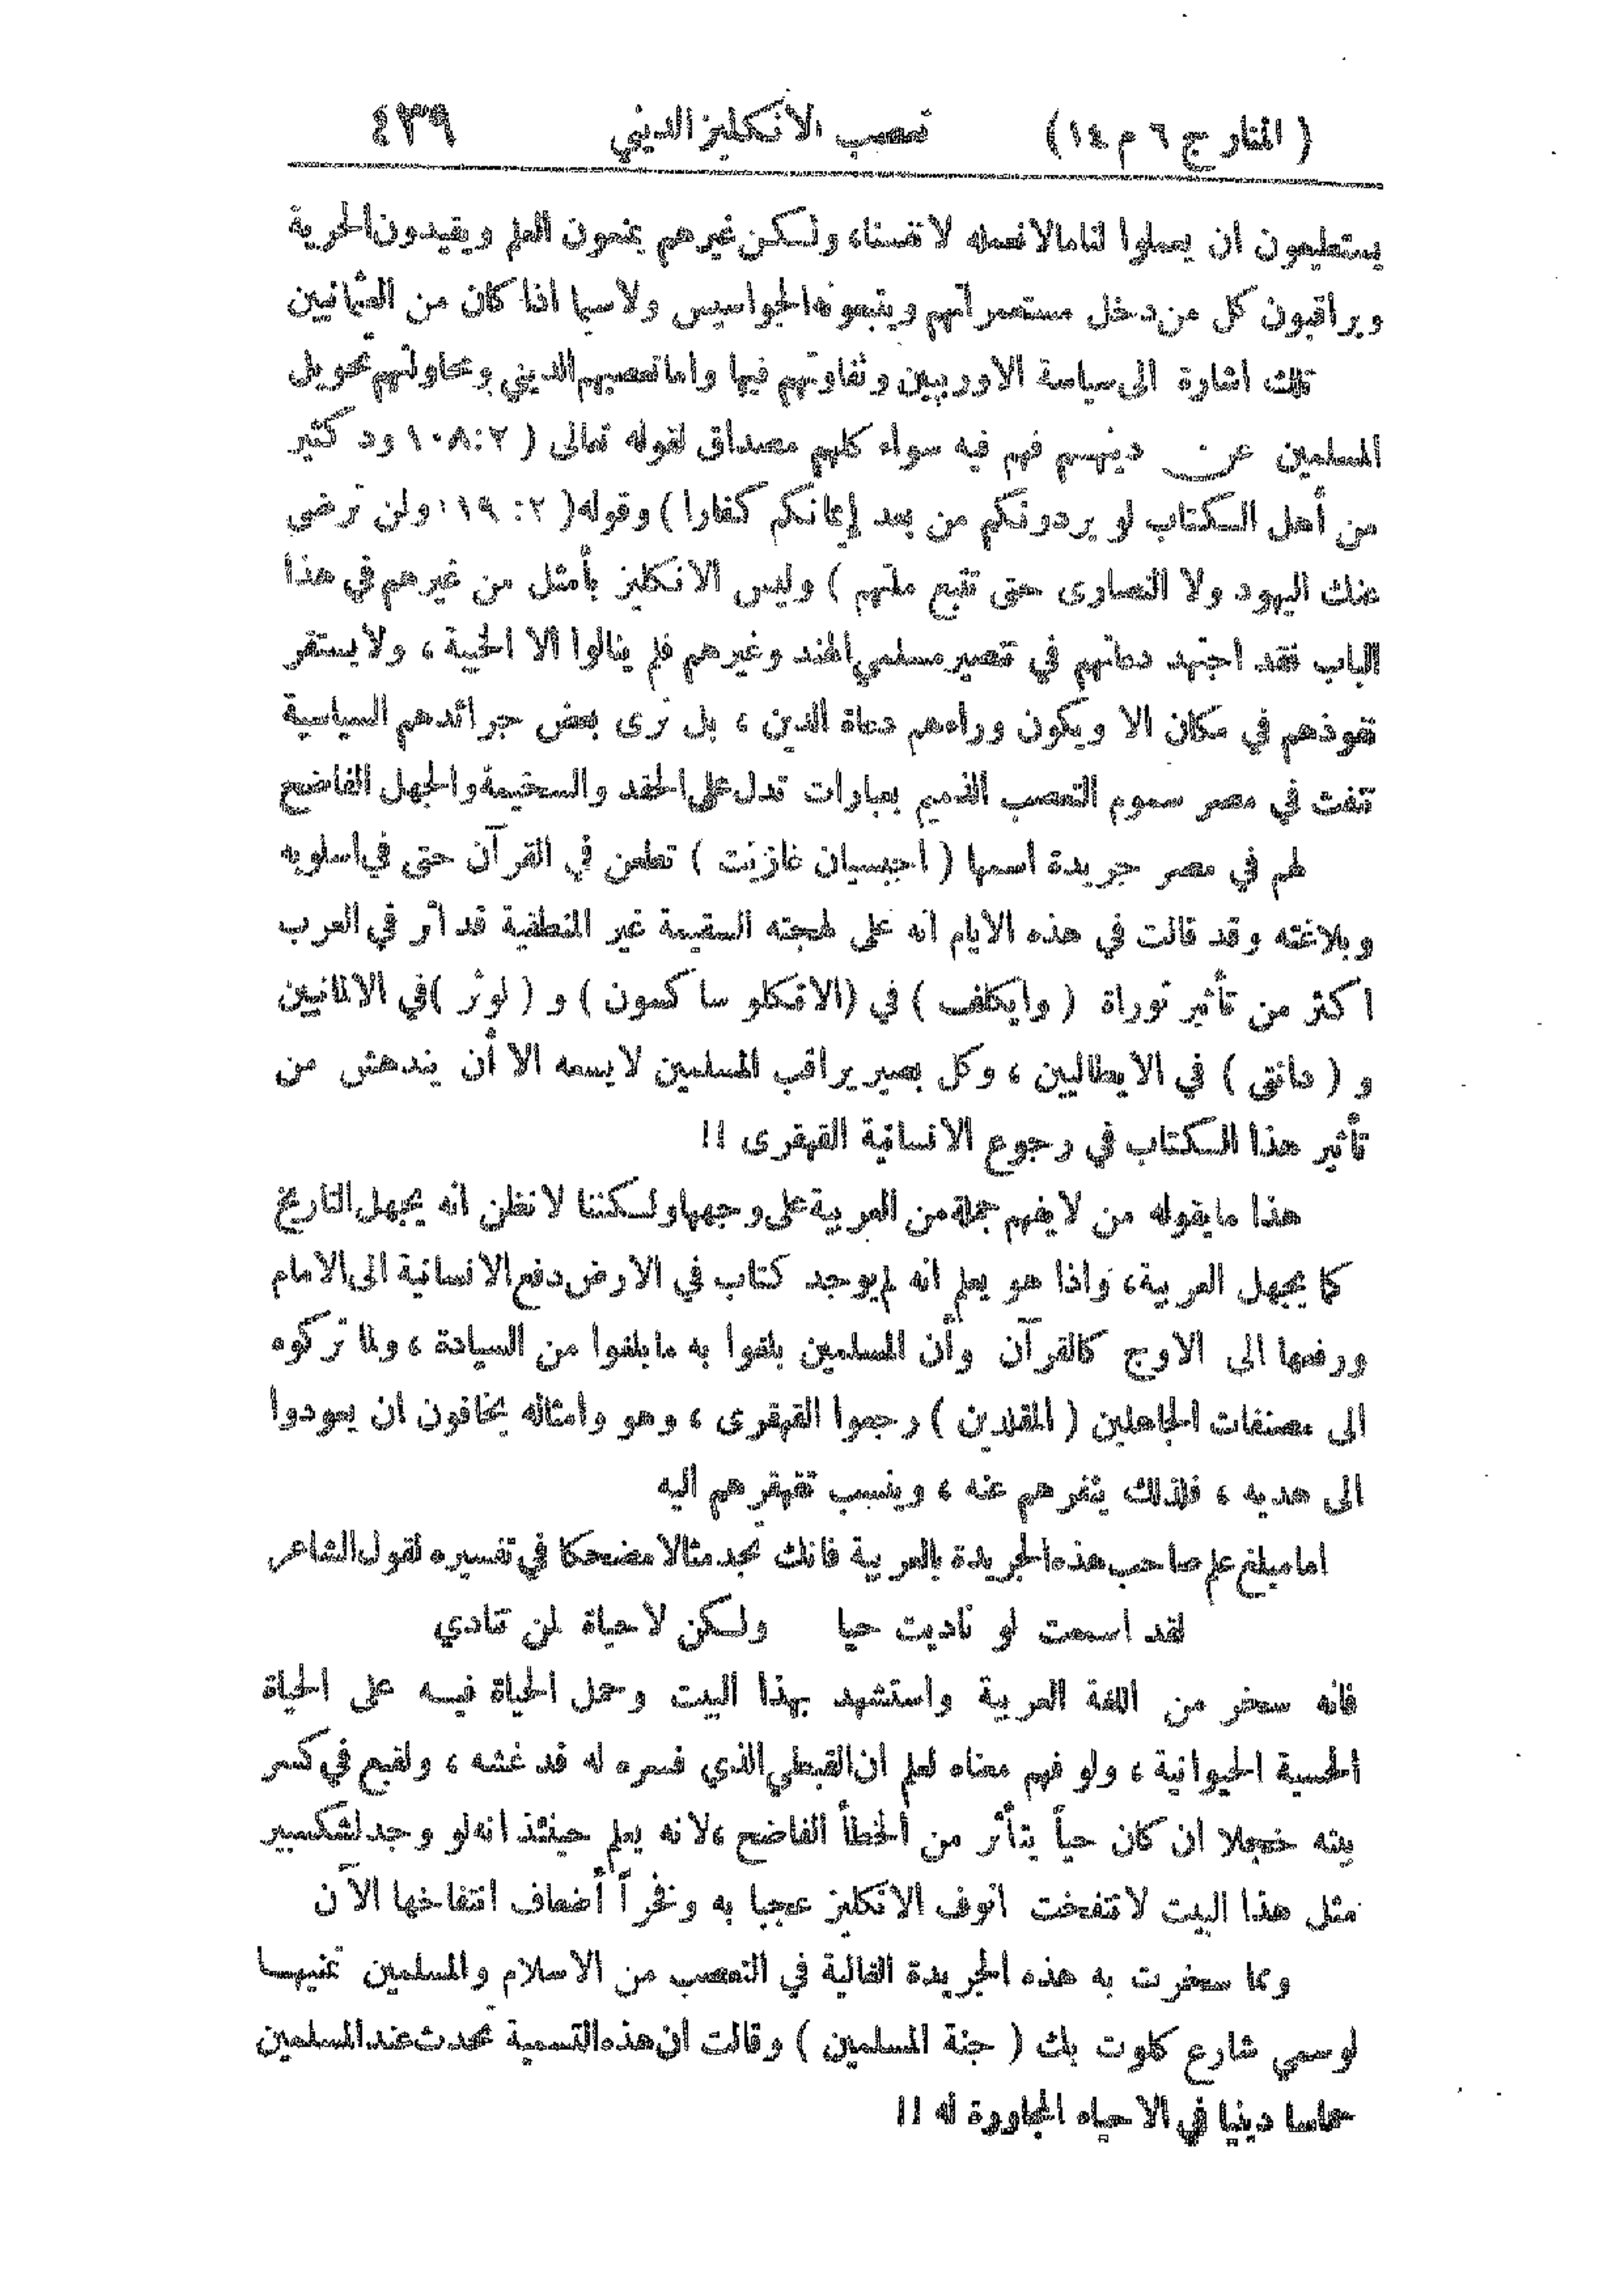 (المنار ج ٦ م ١٤) تعصب الانكليز الديني ٤٣٩
يستطيعون ان يعملوا لنا مالا نعمله لانفسنا، ولكن غيرهم يمنعون العلم ويقيدون الحرية
ويراقبون كل من دخل مستعمراتهم ويتبعونه الجواسيس ولاسيما اذا كان من العثمانيين
تلك اشارة الى سياسة الاوربيين وتفاوتهم فيها واما تعصبهم الديني ومحاولتهم تحويل
المسلمين عن دينهم فهم فيه سواء كلهم مصداق لقوله تعالى (١٠٨:٢ ود كثير
من أهل الكتاب لو يردونكم من بعد إيمانكم كفارا) وقوله (٢: ١١٩ ولن ترضى
عنك اليهود ولا النصارى حتى تتبع ملتهم) وليس الانكليز بأمثل من غيرهم في هذا
الباب فقد اجتهد دعاتهم في تنصير مسلمي الهند وغيرهم فلم ينالوا الا الخيبة، ولا يستقر
نفوذهم في مكان الا ويكون وراءهم دعاة الدين، بل نرى بعض جرائدهم السياسية
تنفث في مصر سموم التعصب الذميم بعبارات تدل على الحقد والسخيمة والجهل الفاضح
لهم في مصر جريدة اسمها (اجبسيان غازيت) تطعن في القرآن حتى في اسلوبه
وبلاغته وقد قالت في هذه الايام انه على لهجته السقيمة غير المنطقية قد اثر في العرب
اكثر من تأثير توراة (وايكلف) في (الانكلو ساكسون) و(لوثر) في الالمانيين
و(دانتي) في الايطاليين، وكل بصير يراقب المسلمين لا يسعه الا أن يندهش من
تأثير هذا الكتاب في رجوع الانسانية القهقرى !!
هذا ما يقوله من لا يفهم جملة من العربية على وجهها ولكننا لا نظن انه يجهل التاريخ
كما يجهل العربية، واذا هو يعلم انه لم يوجد كتاب في الارض دفع الانسانية الى الامام
ورفعها الى الاوج كالقرآن وأن المسلمين بلغوا به ما بلغوا من السيادة، ولما تركوه
الى مصنفات الجاهلين (المقلدين) رجعوا القهقرى، وهو وامثاله يخافون ان يعودوا
الى هديه، فلذلك ينفرهم عنه، وينسب تقهقرهم اليه
اما مبلغ علم صاحب هذه الجريدة بالعربية فانك تجد مثالا مضحكا في تفسيره لقول الشاعر
لقد اسمعت لو ناديت حيا ولكن لا حياة لمن تنادي
فانه سخر من اللغة العربية واستشهد بهذا البيت وحمل الحياة فيه على الحياة
الحسية الحيوانية، ولو فهم معناه لعلم ان القبطي الذي فسره له قد غشه، ولقبع في كسر
بيته خجلا ان كان حياً يتأثر من الخطأ الفاضح، لانه يعلم حينئذ انه لو وجد لشكسبير
مثل هذا البيت لانتفخت انوف الانكليز عجبا به وفخراً أضعاف انتفاخها الآن
ومما سخرت به هذه الجريدة الغالية في التعصب من الاسلام والمسلمين تمنيها
لو سمي شارع كلوت بك (جنة المسلمين) وقالت ان هذه التسمية تحدث عند المسلمين
حماسا دينيا في الاحياء المجاورة له !!